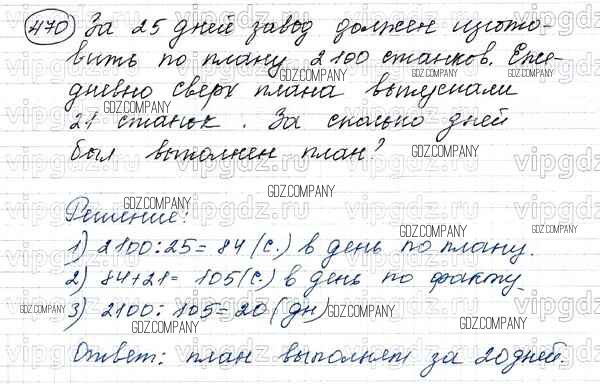 470 За 25 дней завод должен изгото-
вить по плану 2100 станков. Еже-
дневно сверх плана выпускали
21 станок. За сколько дней
был выполнен план?
Решение:
1) 2100:25= 84 (с.) в день по плану.
2) 84+21= 105 (с.) в день по факту.
3) 2100:105=20 (дн)
Ответ: план выполнен за 20 дней.
GDZ.COMPANY
vipgdz.ru